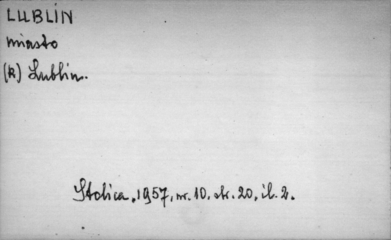 LUBLIN
miasto
(k) Lublin.
Stolica, 1957, nr. 10, str. 20, il. 2.